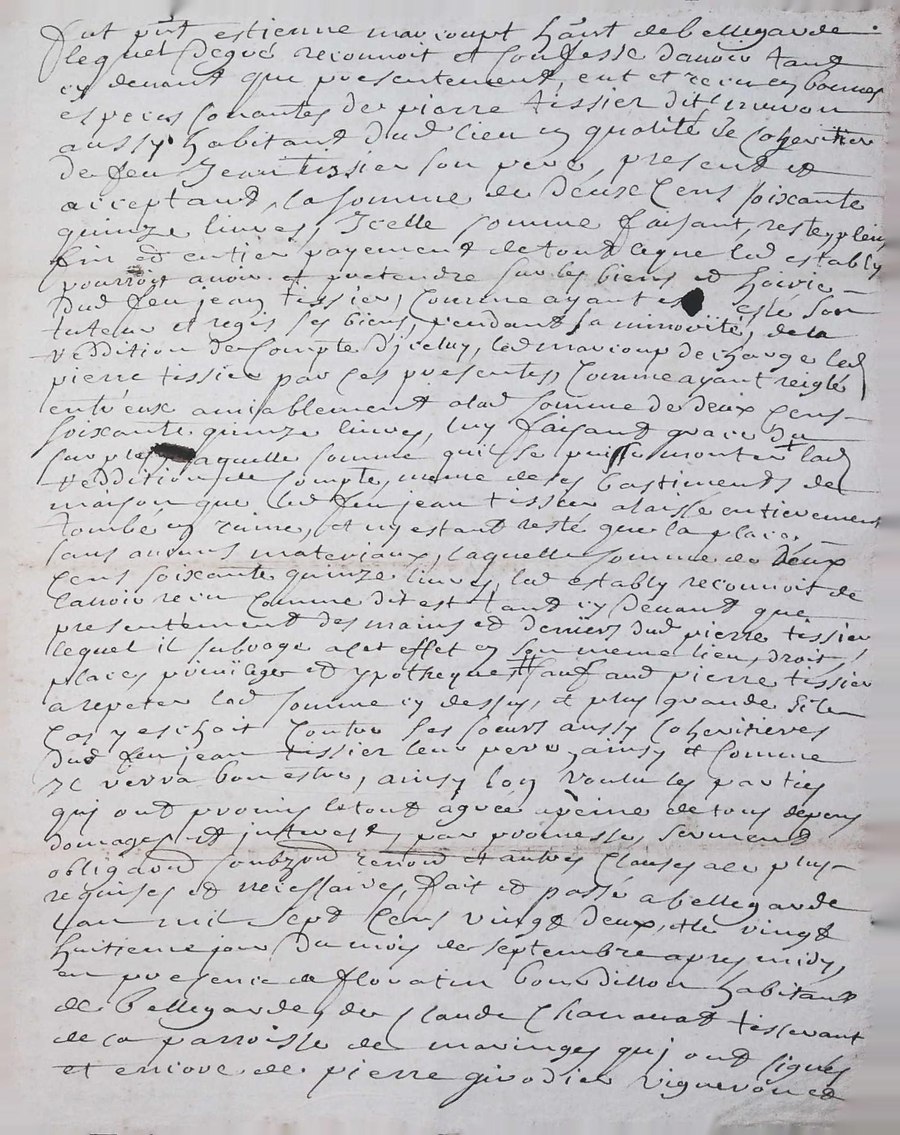 fut pnt estienne maucoupt hant de bellegarde
lequel de gré reconnoit et confesse d'avoir tant
cy devant que presentement, eut et receu en bonnes
especes courantes de pierre tissier dit
aussy habitant dud lieu en qualité de coheritier
de feu Jean tissier son pere, present et
acceptand, la somme de deux cens soixante
quinze livres, Icelle somme faisant, reste, plein,
fin et entier payement de tout ce que led estably
pourroit avoir et pretendre sur les biens et hoirie
dud feu jean tissier, comme ayant esté son
tuteur et regis ses biens, pendant sa minorité, de la
reddition de compte d'jceluy, led maucoup decharge led
pierre tissier par ces presentes, comme ayant reiglé
entr'eux amiablement alad somme de deux cens
soixante quinze livres, luy faisant grace du
surplus laquelle somme qu'jl se puisse monter lad
reddition de compte, meme de ses bastiments de
maison que led feu jean tissier a laissé entierement
tombé en ruine, et n'y estant resté que la place,
sans aucuns materiaux, laquelle somme de deux
cens soixante quinze livres, led estably reconnoit de
l'avoir receu comme dit est tant cy devant que
presentement des mains et deniers dud pierre tissier
lequel il subroge a cet effet en son meme lieu, droit,
places privileges et ypotheques sauf aud pierre tissier
a repeter lad somme cy dessus, et plus grande si le
cas y eschoit contre ses soeurs aussy coheritieres
dud feu jean tissier leur pere, ainsy et comme
Il verra bon estre, ainsy l'on voulu les parties
qui ont promis le tout agreer a peine de tous depens
domages et jnterest, par promesses, serment
obligaon soubzon renon et autres clauses a ce plus
requises et necessaires, fait et passé a bellegarde
l'an mil sept cens vingt deux, et le vingt
huitieme jour du mois de septembre apres midy,
en presence de floratin bourdillon habitant
de bellegarde, de Claude Chanavat tisserant
de la parroisse de maringes qui ont signés
et encore de pierre girodier vigneron et